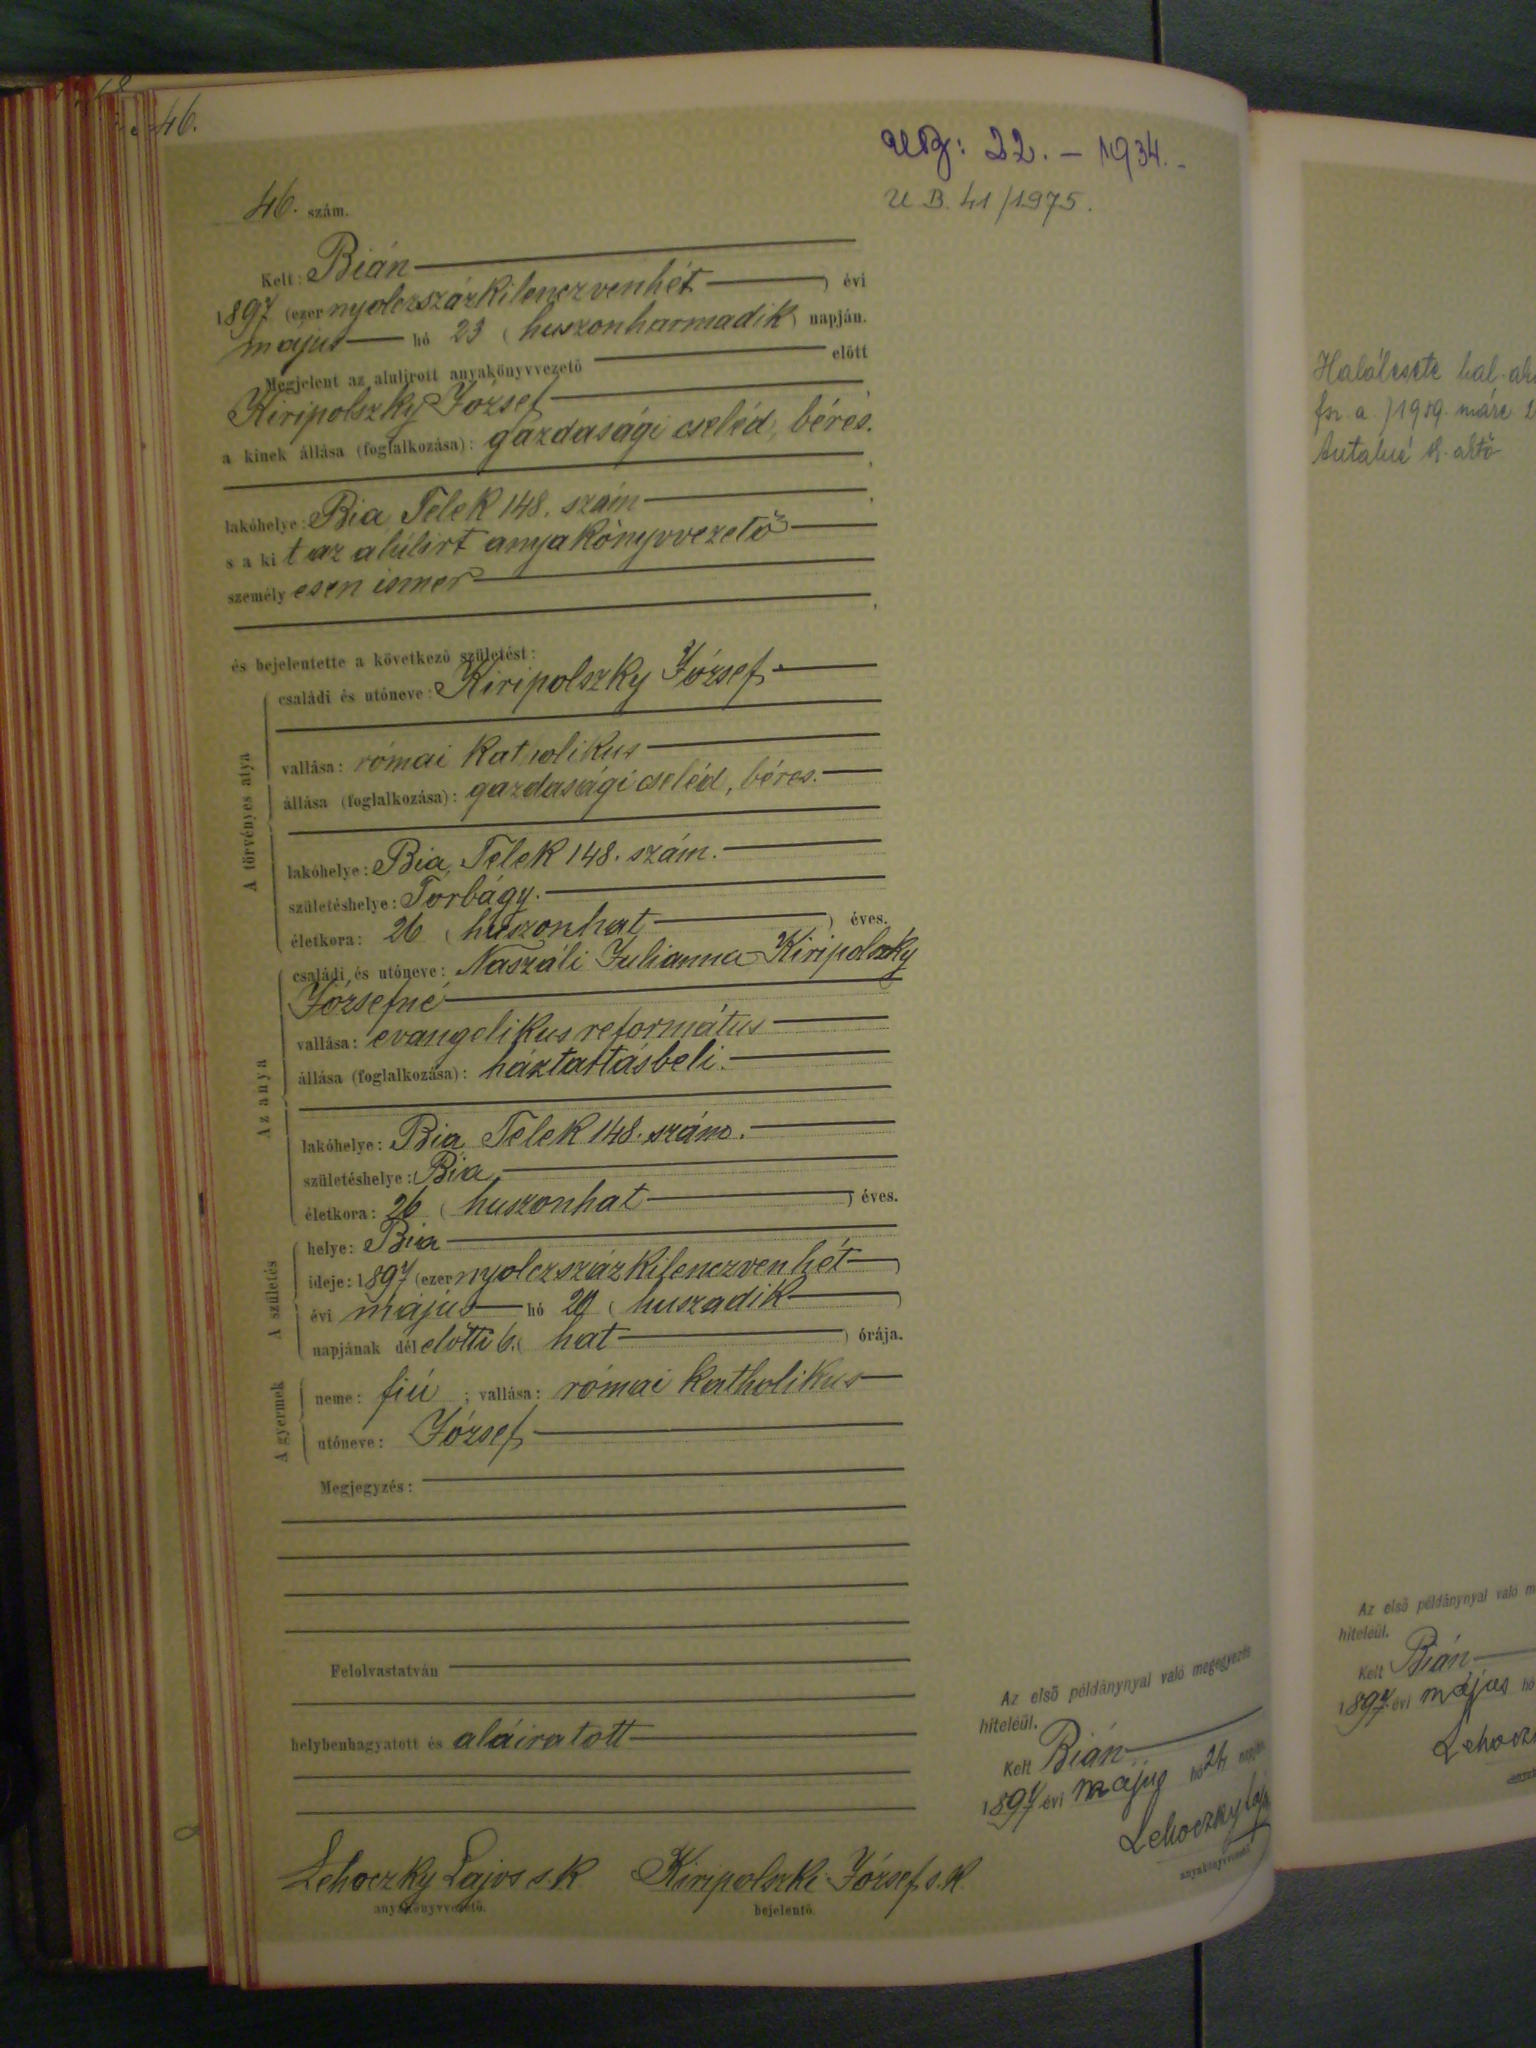 46.
46. szám.
Kelt: Bián
1897 (ezer nyolczszázkilenczvenhét) évi
május hó 23 (huszonharmadik) napján.
Megjelent az alulirott anyakönyvvezető előtt
Kiripolszky József,
a kinek állása (foglalkozása): gazdasági cseléd, béres.
lakóhelye: Bia, Telek 148. szám,
s a kit az alúlirt anyakönyvvezető
személyesen ismer,
és bejelentette a következő születést:
A törvényes atya
családi és utóneve: Kiripolszky József
vallása: római katholikus
állása (foglalkozása): gazdasági cseléd, béres.
lakóhelye: Bia, Telek 148. szám.
születéshelye: Torbágy.
életkora: 26 (huszonhat) éves.
Az anya
családi és utóneve: Naszáli Julianna Kiripolszky
Józsefné
vallása: evangelikus református
állása (foglalkozása): háztartásbeli.
lakóhelye: Bia, Telek 148. szám.
születéshelye: Bia,
életkora: 26 (huszonhat) éves.
A születés
helye: Bia
ideje: 1897 (ezer nyolczszázkilenczvenhét)
évi május hó 20 (huszadik)
napjának délelőtti 6. (hat) órája.
A gyermek
neme: fiú ; vallása: római katholikus
utóneve: József
Megjegyzés:
Felolvastatván
helybenhagyatott és aláiratott
Lehoczky Lajos s.k. Kiripolszki József s.k.
anyakönyvvezető. bejelentő.
22. – 1934.
U. B. 41/1975.
Az első példánynyal való megegyezés
hiteléül.
Kelt Bián
1897 évi május hó 24 napján
Lehoczky Laj
anyakönyvvezető
Halálesete hal. ak
1989. márc. 2
Az első példánynyal való m
hiteléül.
Kelt Bián
1897. évi május hó
Lehocz